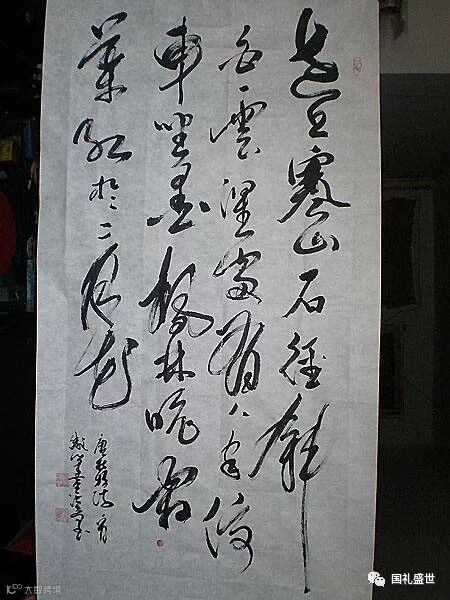 遠上寒山石徑斜
白雲深處有人家停
車坐愛楓林晚霜
葉紅於二月花
大数跨境
国礼盛世